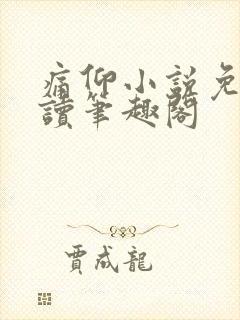 痛仰小說免
讀筆趣閣
賈成龍